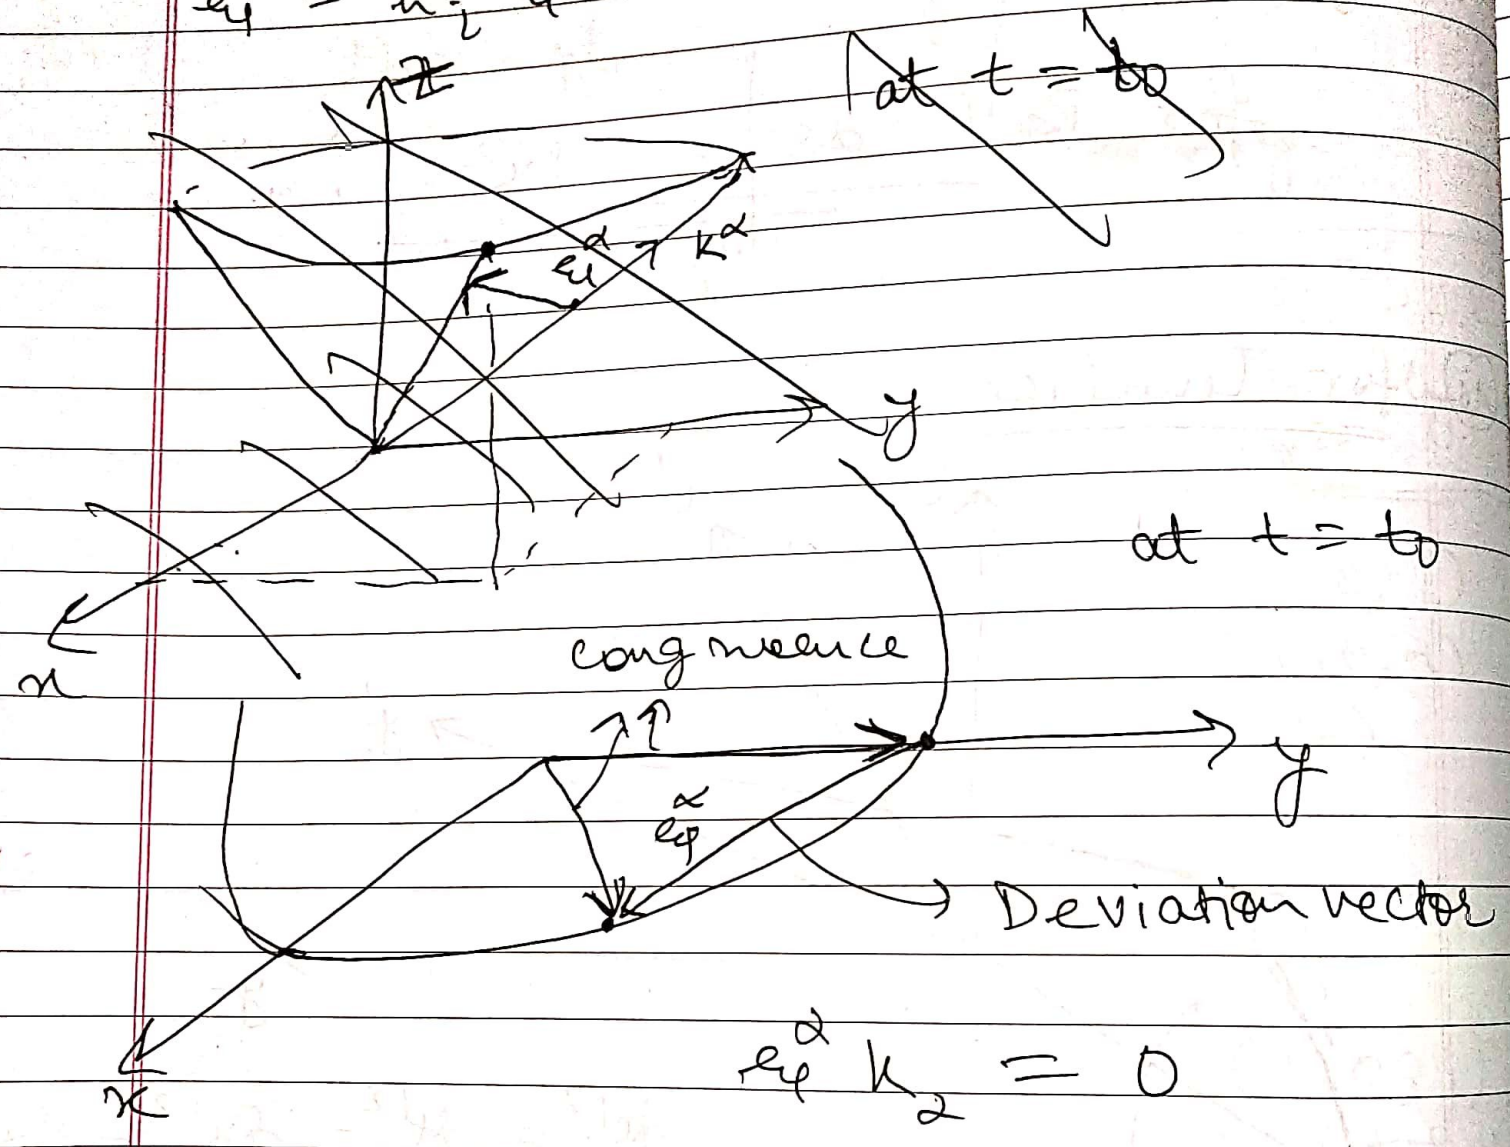 z
at t = t0
ξ^α
k^α
y
x
at t = t0
congruence
y
ξ^α
Deviation vector
x
ξ^α k_α = 0